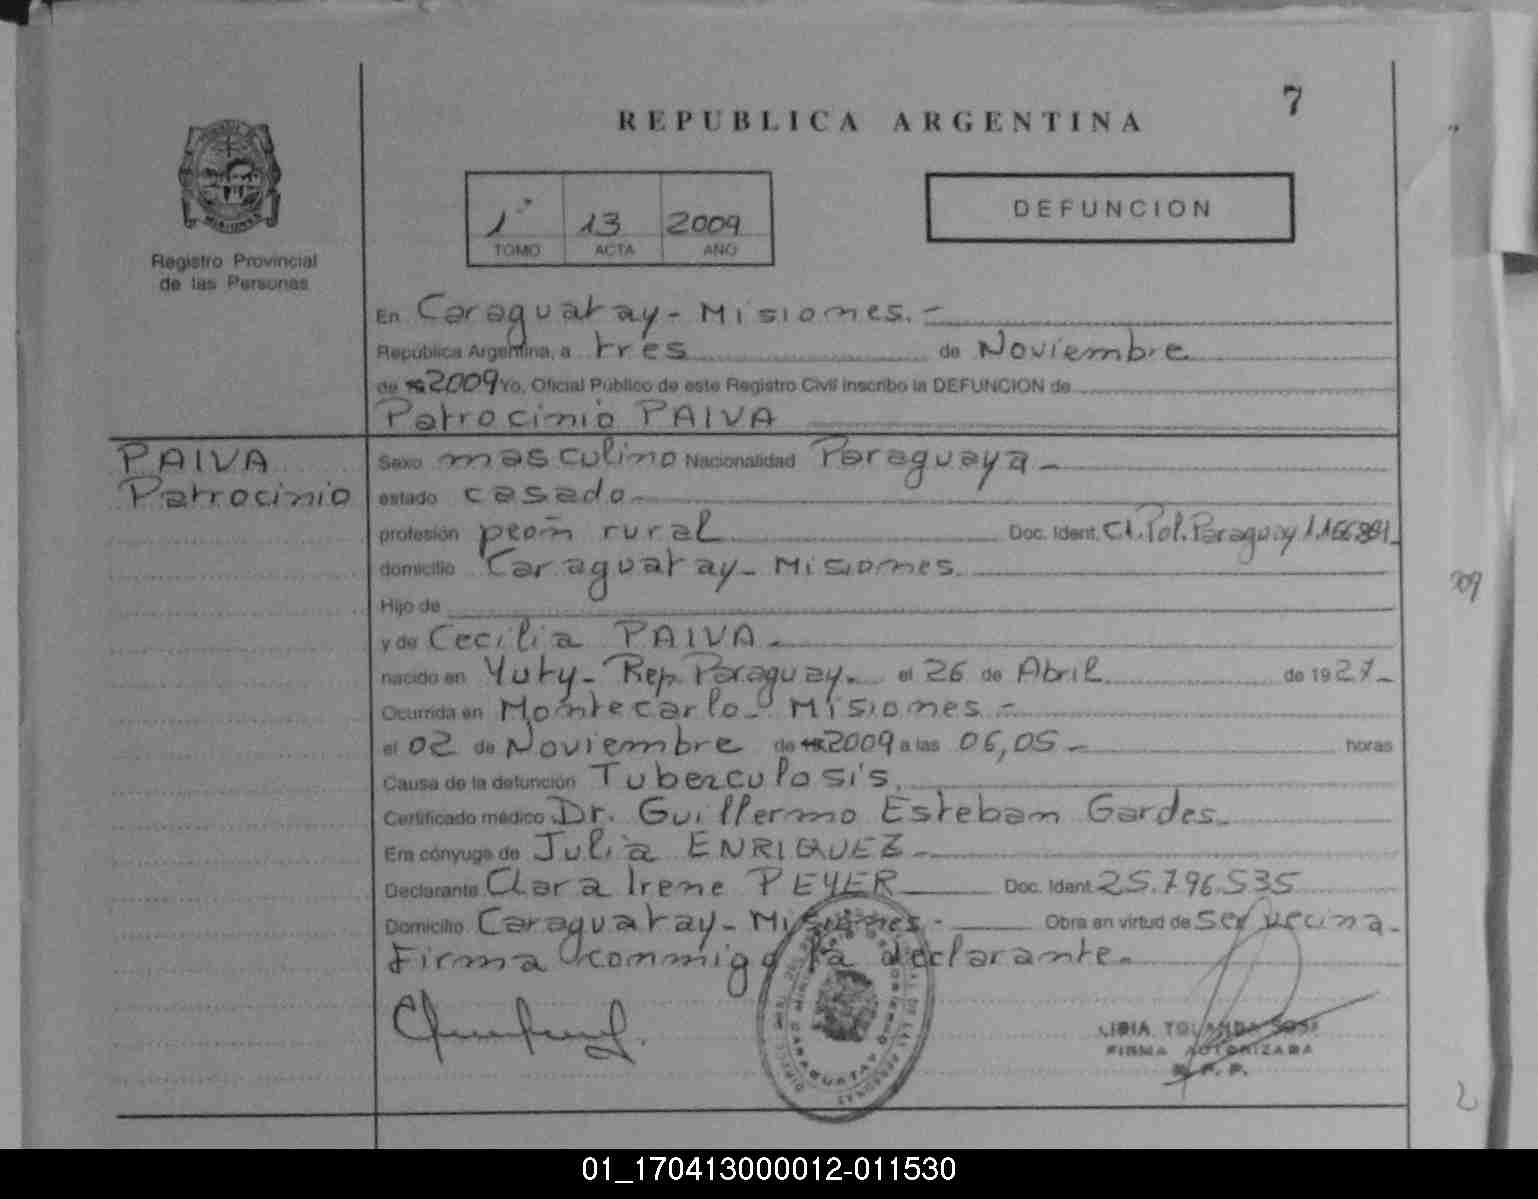 7
REPUBLICA ARGENTINA
1º 13 2009
TOMO ACTA AÑO
DEFUNCION
Registro Provincial
de las Personas
En Caraguatay - Misiones.-
República Argentina, a tres de Noviembre
de 2009 Yo, Oficial Público de este Registro Civil inscribo la DEFUNCION de
Patrocinio PAIVA
PAIVA
Patrocinio
Sexo masculino Nacionalidad Paraguaya -
estado casado -
profesión peón rural Doc. Ident. CI. Pol. Paraguay 1.166.981
domicilio Caraguatay - Misiones
Hijo de
y de Cecilia PAIVA -
nacido en Yuty - Rep. Paraguay. el 26 de Abril de 1927 -
Ocurrida en Montecarlo - Misiones -
el 02 de Noviembre de 2009 a las 06,05 - horas
Causa de la defunción Tuberculosis.
Certificado médico Dr. Guillermo Esteban Gardes -
Era cónyuge de Julia ENRIQUEZ -
Declarante Clara Irene PEYER Doc. Ident. 25.796.535
Domicilio Caraguatay - Misiones - Obra en virtud de ser vecina -
Firma conmigo la declarante.
CARAGUATAY
LIDIA YOLANDA SOSA
FIRMA AUTORIZADA
R. P. P.
01_170413000012-011530